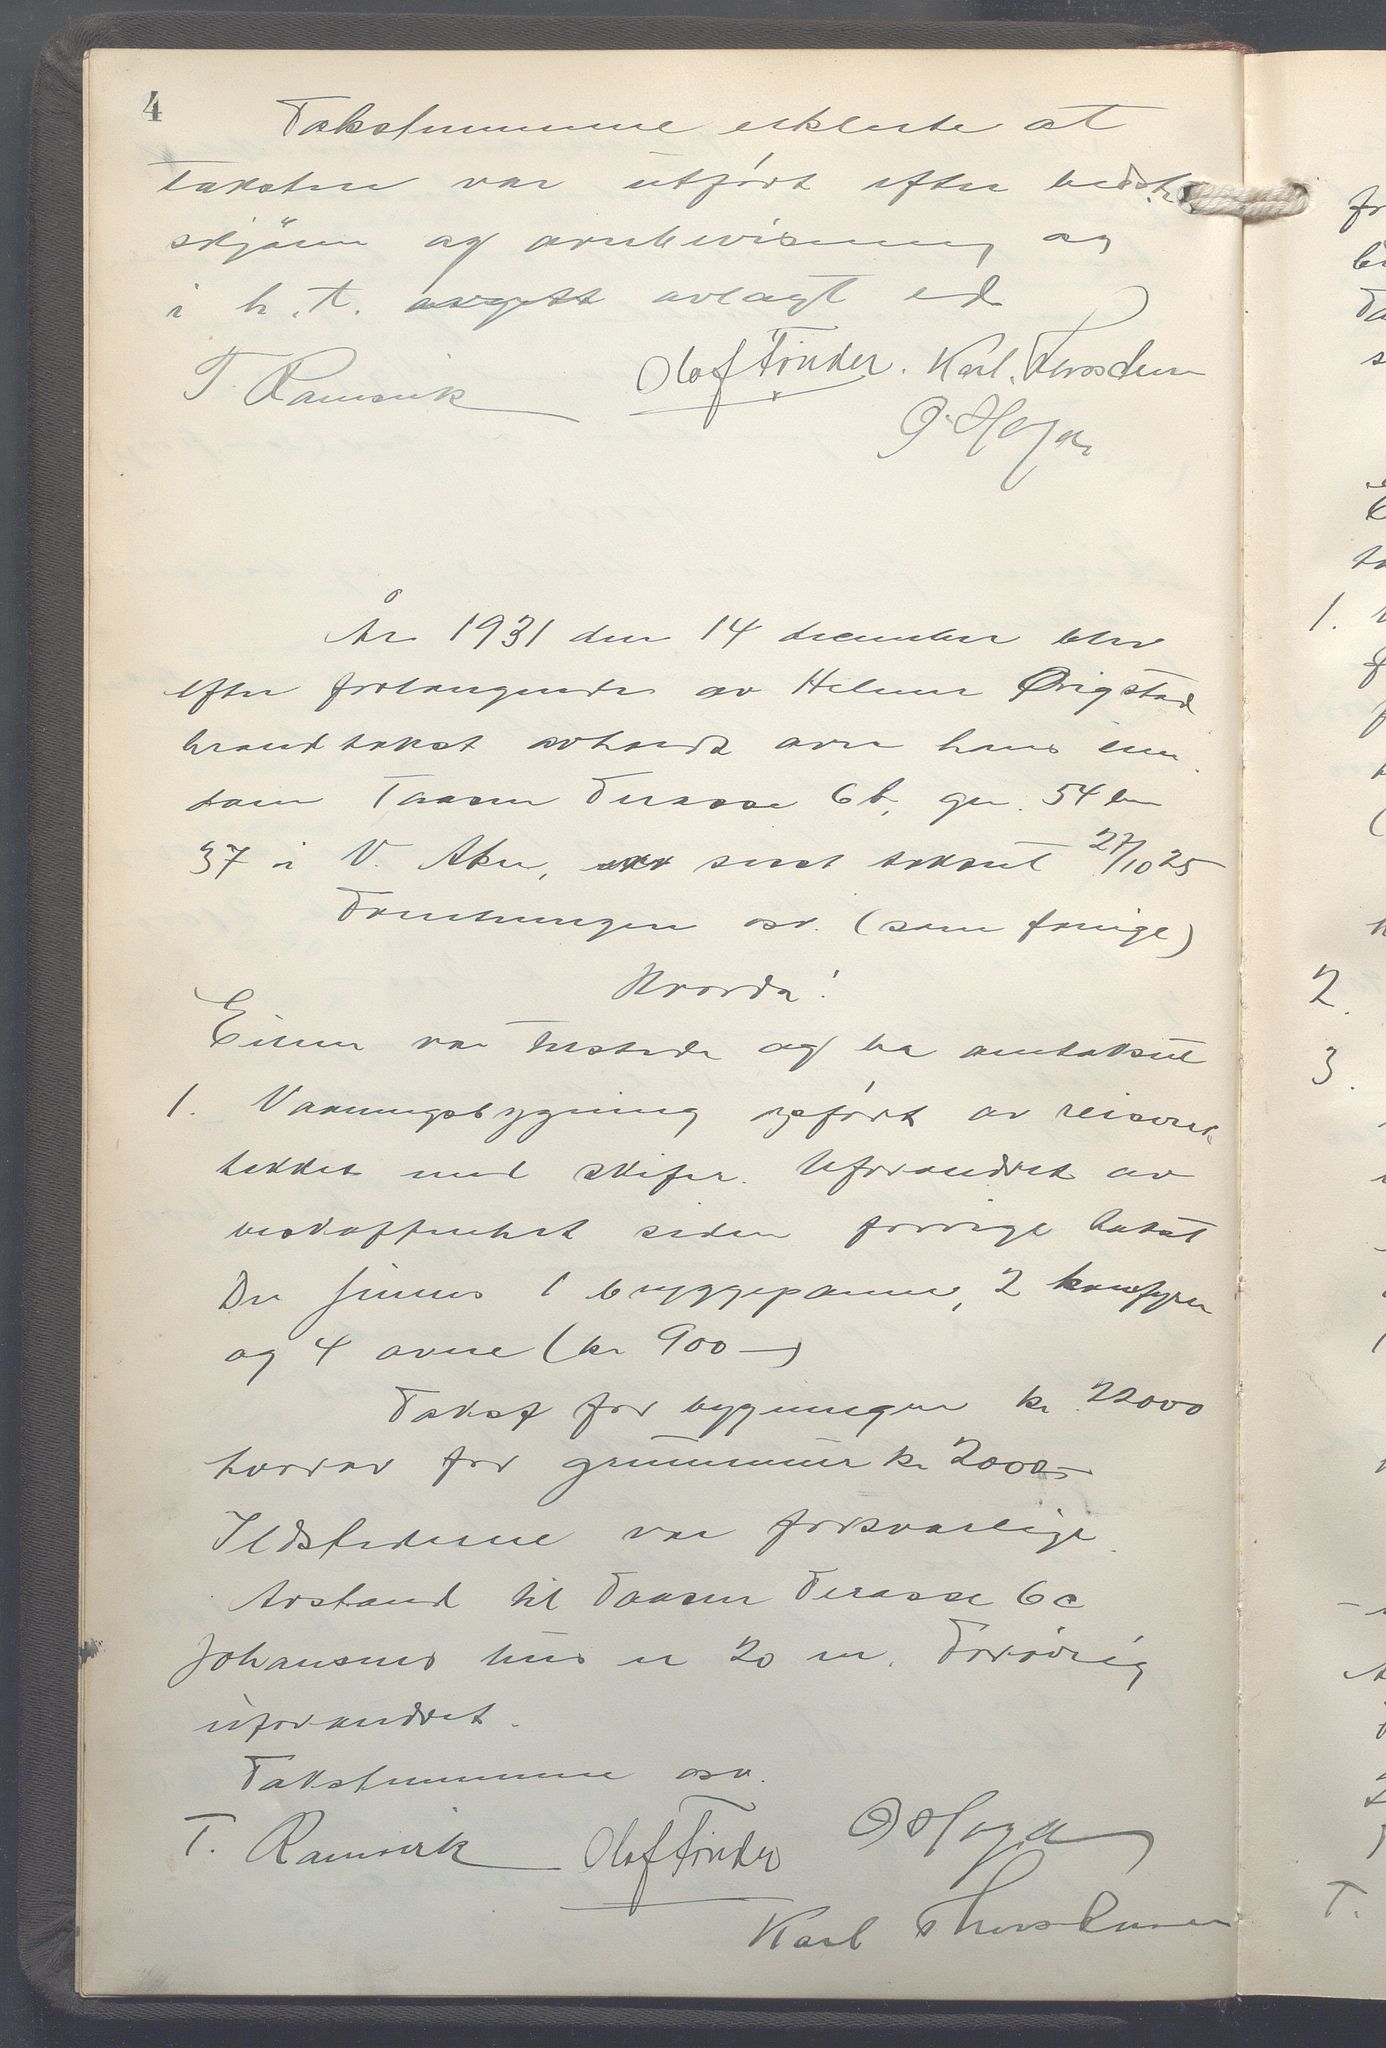 4
Takstmennene erklerte at
taksten var utført efter bedste
skjønn og overbevisning og
i h.t. avlagt ed
T. Ramsvik Olaf Tönder. Karl.
O. Hogn
År 1931 den 14 december blev
efter forlangende av Helmer Ørigstad
brandtakst avholdt over hans eien-
dom Taasen Terasse 6b, gn. 54 bn
37 i V. Aker, sist taksert 27/10 25
Forretningen osv. (som forrige)
Hvorda!
Eieren var tilstede og ba omtaksert
1. Vaaningsbygning opført av reisverk
tekket med skifer. Uforandret av
beskaffenhet siden forrige takst
Der finnes 1 bryggepanne, 2 komfyrer
og 4 ovne (kr 900 —)
Takst for bygningen kr 22000
hvorav for grunnmur kr 2000 —
Ildstederne var forsvarlige.
Avstand til Taasen Terasse 6c
Johansens hus er 20 m. Forøvrig
uforandret.
Takstmennene osv.
T. Ramsvik Olaf Tönder O Hogn
Karl